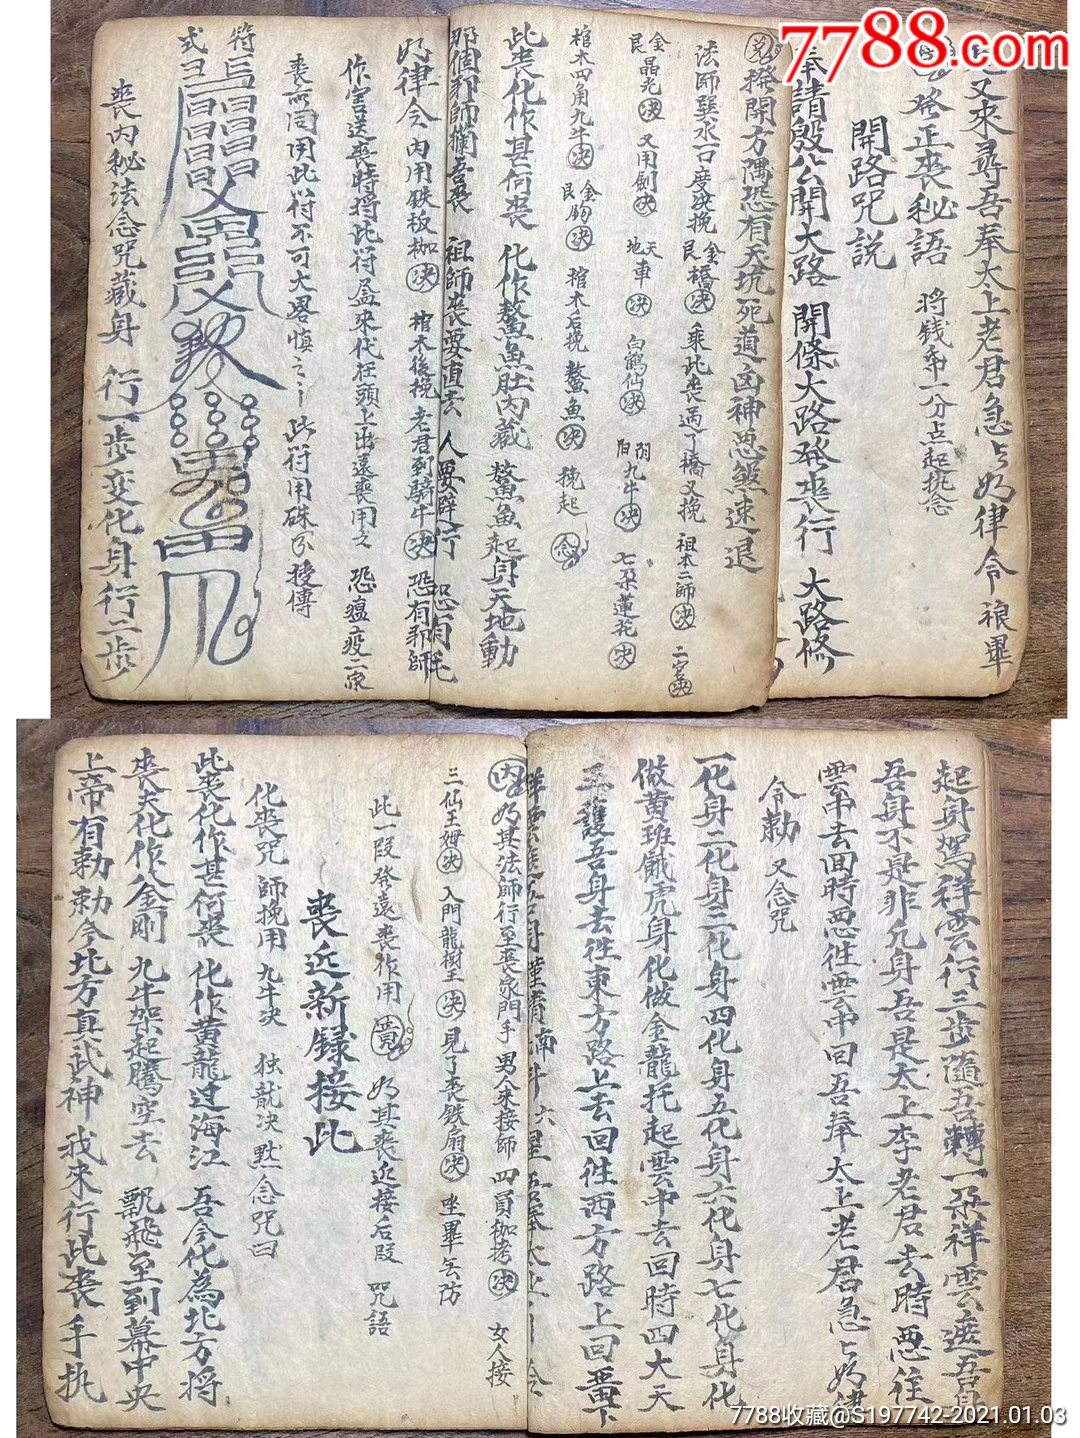 7788.com
鬼又來尋吾奉太上老君急〻如律令 祿畢
發正喪秘語 將錢帛一分点起执念
開路咒説
奉請殷公開大路 開條大路發喪行 大路修
撥開方隅恐有天坑 死道凶神惡煞速退
法師巽水一口度决挽 金橋决 艮 乘此喪過了橋 又挽 祖本二師决 二宮决
金 艮 晶光决 又用劍决 天地車决 白鶴仙决 九牛决 七朵蓮花决
棺木四角九牛决 金 艮 鈎决 棺木后挽 鰲魚决 挽起 念
此喪化作甚何喪 化作鰲魚肚内藏 鰲魚起身天地動
那個邪師攔吾喪 祖師喪要直去 人要辟行
如律令 内用鉄板枷决 棺木後挽 老君到騎牛决 恐有邪師
作宝送喪時將此符益來代在頭上出遠喪用之 恐瘟疫二家
喪所同用此符不可大畧慎之〻 此符用硃 授傳
符式
喪内秘法念咒藏身 行一步变化身行二步
起身駕祥雲行三步隨吾轉一朵祥雲遮吾身
吾身不是非凡身吾是太上李老君去時惡往
雲中去回時惡往雲中回吾奉太上老君急〻如律
令勅 又念咒
一化身二化身三代身四化身五代身六代身七化身化
做黄班餓虎身化做金龍托起雲中去回時四大天
王護吾身去往東方路上去回往西方路上回
吾身 南斗六星吾奉太上 令
内 如其法師行至喪家門手 男人來接師 四員枷拷决 女人接
三仙王姆决 入門龍樹王决 見了喪鉄扇决 坐畢去防
此一段發遠喪作用 如其喪近接后段 咒語
喪近新録接此
化喪咒 師挽用 九牛决 独龍决 黙念咒曰
此喪化作甚何喪 化作黄龍过海江 吾今化為北方將
喪夫化作八金剛 九牛架起騰空去 飄飛至到墓中央
上帝有勅勅令北方真武神 我來行此喪 手执
7788收藏@S197742-2021.01.03